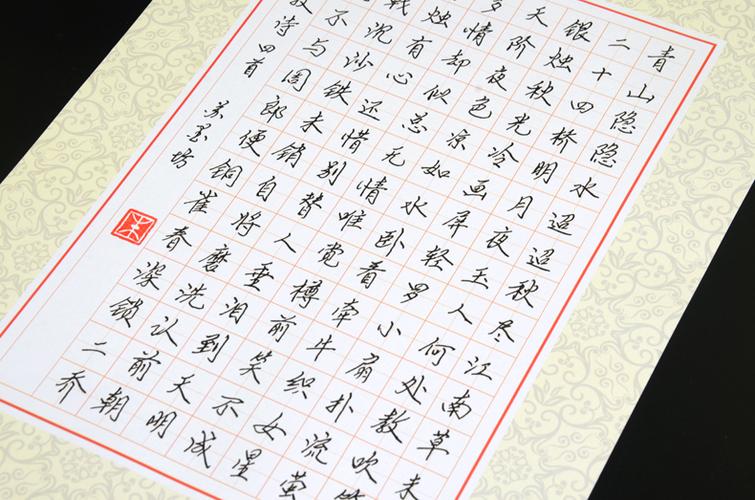 青山隐隐水迢迢秋尽江南草未
二十四桥明月夜玉人何处教吹
银烛秋光冷画屏轻罗小扇扑流萤
天阶夜色凉如水卧看牵牛织女星
多情却似总无情唯觉樽前笑不成
烛有心还惜别替人垂泪到天明
戟沉沙铁未销自将磨洗认前朝
不与周郎便铜雀春深锁二乔
牧诗四首 苏墨坊